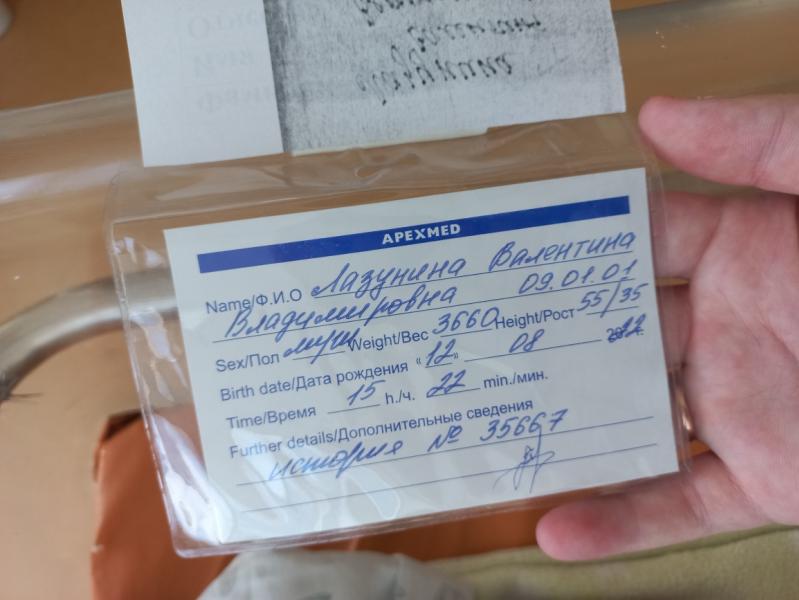 Лазунина
APEXMED
Name/Ф.И.О Лазунина Валентина
Владимировна 09.01.01
Sex/Пол муж Weight/Вес 3660 Height/Рост 55/35
Birth date/Дата рождения «12» 08
Time/Время 15 h./ч. 22 min./мин.
Further details/Дополнительные сведения
история № 35667